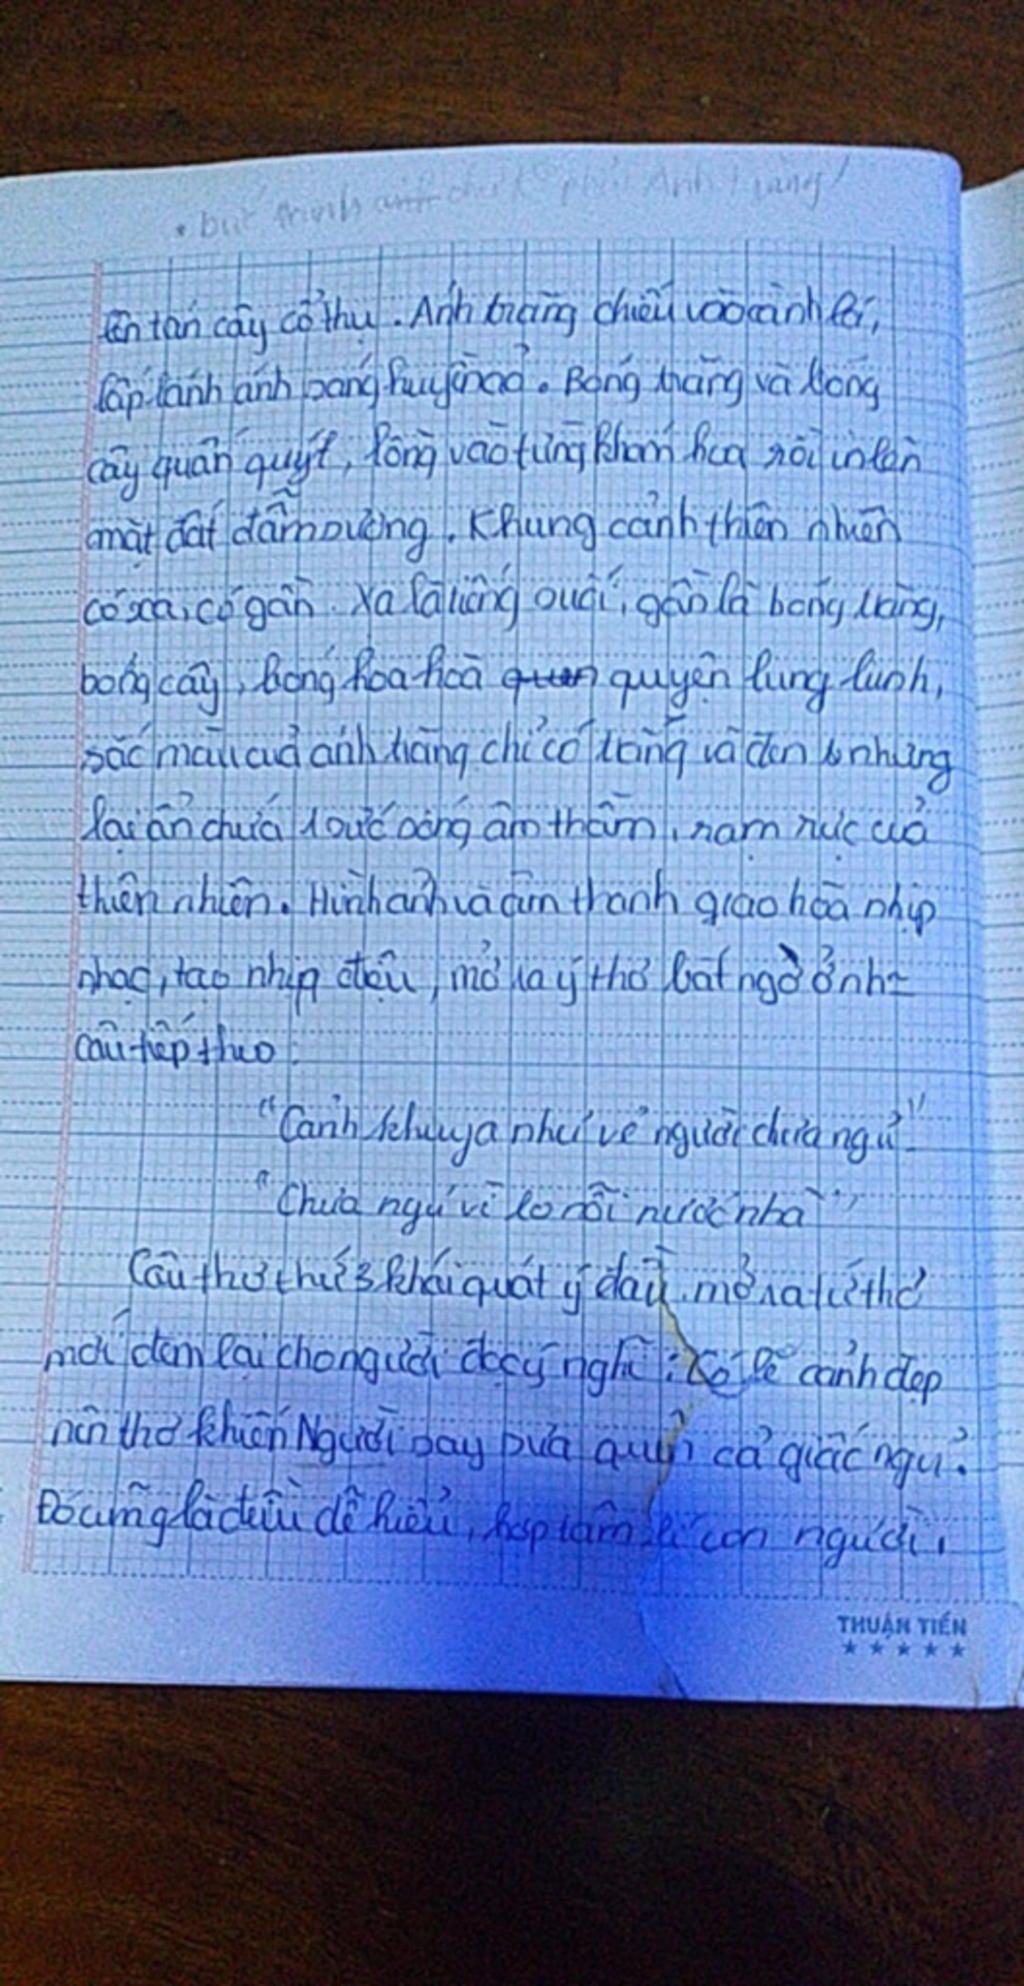 • bút
lên tán cây cổ thụ. Ánh trăng chiếu vào cành lá,
lấp lánh ánh sáng huyền ảo. Bóng trăng và bóng
cây quấn quýt, lồng vào từng khóm hoa rồi in lên
mặt đất đẫm sương. Khung cảnh thiên nhiên
có xa, có gần. Xa là tiếng suối, gần là bóng trăng,
bóng cây, bóng hoa hoà quyện lung linh,
sắc màu của ánh trăng chỉ có trắng và đen nhưng
lại ẩn chứa 1 sức sống âm thầm, rạo rực của
thiên nhiên. Hình ảnh và âm thanh giao hoà nhịp
nhạc, tạo nhịp điệu, mở ra ý thơ bất ngờ ở
câu tiếp theo:
"Cảnh khuya như vẽ người chưa ngủ"
"Chưa ngủ vì lo nỗi nước nhà"
Câu thơ thứ 3 khái quát ý đầu, mở ra tứ thơ
mới đem lại cho người đọc ý nghĩ: Có lẽ cảnh đẹp
nên thơ khiến Người say sưa quên cả giấc ngủ.
Đó cũng là điều dễ hiểu, hợp tâm lí con người.
THUẬN TIẾN